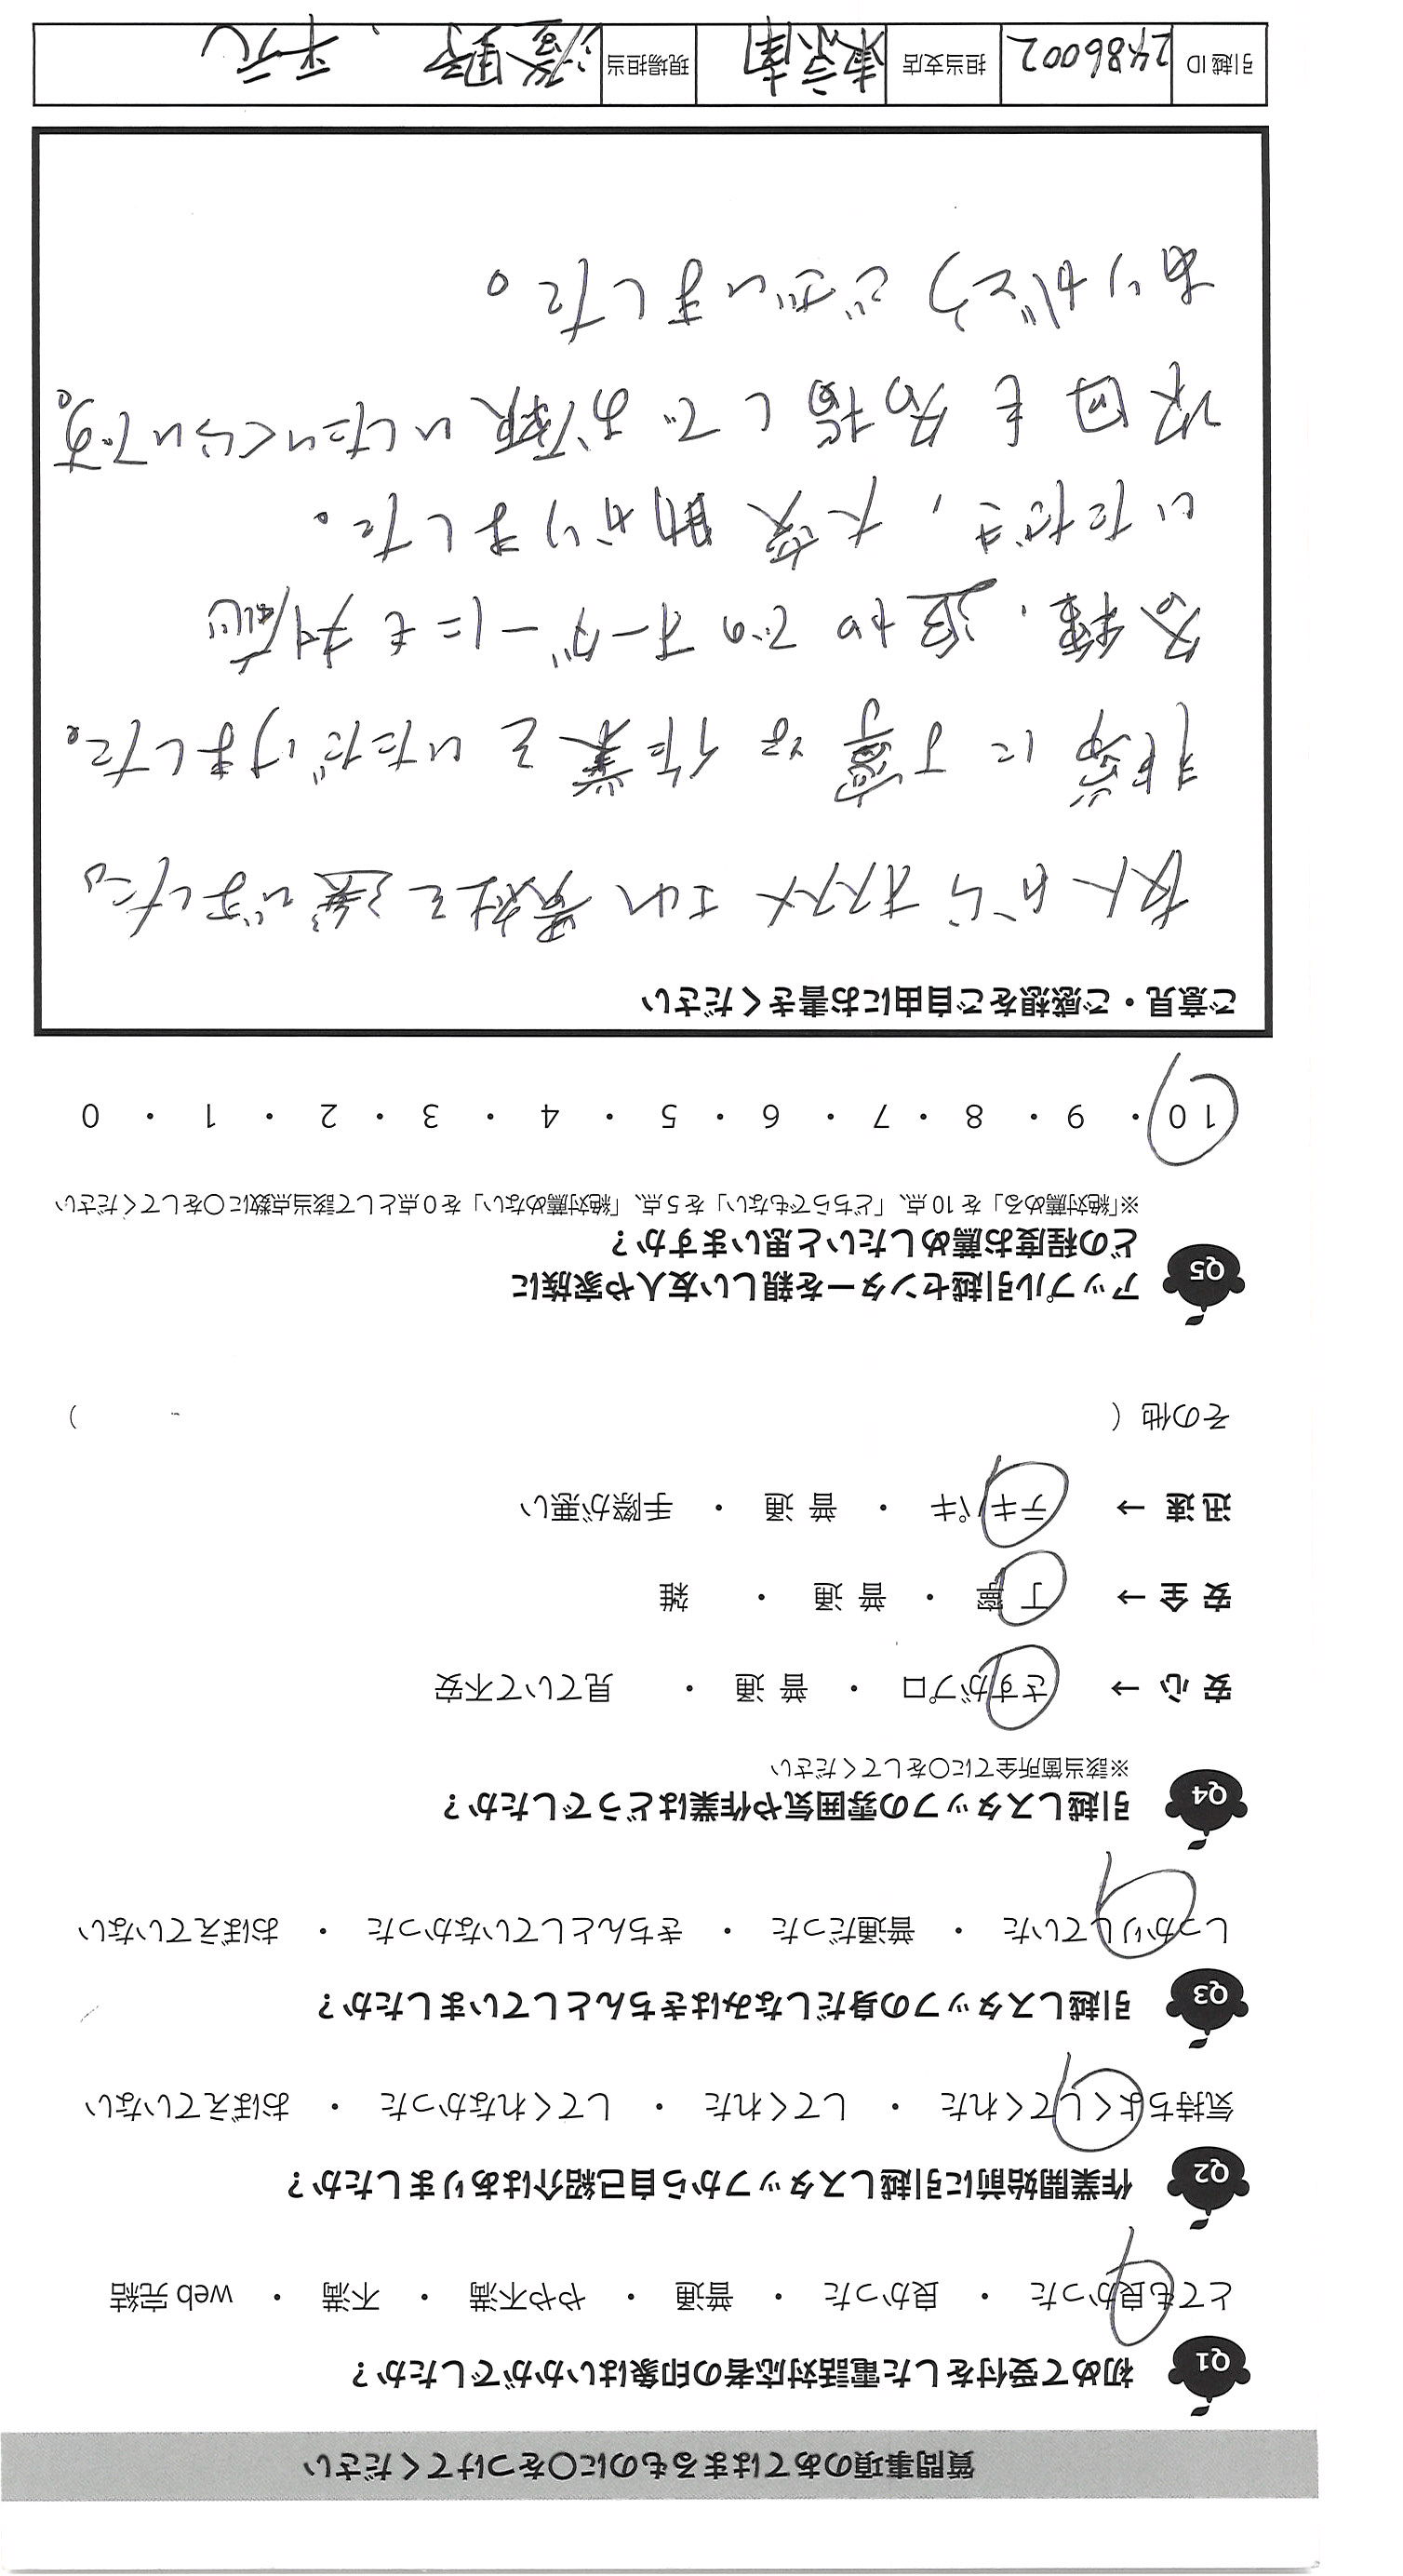 質問事項のあてはまるものに○をつけてください
Q1 初めて受付をした電話対応者の印象はいかがでしたか？
とても良かった ・ 良かった ・ 普通 ・ やや不満 ・ 不満 ・ web 完結
Q2 作業開始前に引越しスタッフから自己紹介はありましたか？
気持ちよくしてくれた ・ してくれた ・ してくれなかった ・ おぼえていない
Q3 引越しスタッフの身だしなみはきちんとしていましたか？
しっかりしていた ・ 普通だった ・ きちんとしていなかった ・ おぼえていない
Q4 引越しスタッフの雰囲気や作業はどうでしたか？
※該当箇所全てに○をしてください
安 心 → さすがプロ ・ 普 通 ・ 見ていて不安
安 全 → 丁 寧 ・ 普 通 ・ 雑
迅 速 → テキパキ ・ 普 通 ・ 手際が悪い
その他（ ）
Q5 アップル引越センターを親しい友人や家族に
どの程度お薦めしたいと思いますか？
※「絶対薦める」を 10 点、「どちらでもない」を 5 点、「絶対薦めない」を 0 点として該当点数に○をしてください
10 ・ 9 ・ 8 ・ 7 ・ 6 ・ 5 ・ 4 ・ 3 ・ 2 ・ 1 ・ 0
ご意見・ご感想をご自由にお書きください
友人からオススメされ貴社を選びました。
非常に丁寧な作業をいただけました。
各種、追加でのオーダーにも対応
いただき、大変助かりました。
次回も名指しでお願いしたいくらいです。
ありがとうございました。
引越 ID 2486002 担当支店 東京南 現場担当